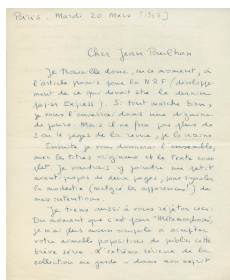 Paris. Mardi 20 Mars [1957]
Cher Jean Paulhan
Je travaille donc, en ce moment, à
l'article promis pour la N.R.F. (développe-
ment de ce qui devait être le dernier
papier Express). Si tout marche bien,
je vous l'enverrai dans une dizaine
de jours. Mais il ne fera pas plus de
3 ou 4 pages de la revue, je le crains.
Ensuite je vous donnerai l'ensemble,
avec les titres originaux et le texte com-
plet. Je voudrais y joindre un petit
avant-propos de deux pages, pour signaler
la modestie (malgré les apparences) de
mes intentions.
Je tiens aussi à vous répéter ceci:
Du moment que c'est pour "Métamorphoses",
je n'ai plus aucun scrupule à accepter
votre aimable proposition de publier cette
brève série. L'extrême sérieux de la
collection me garde – dans mon esprit